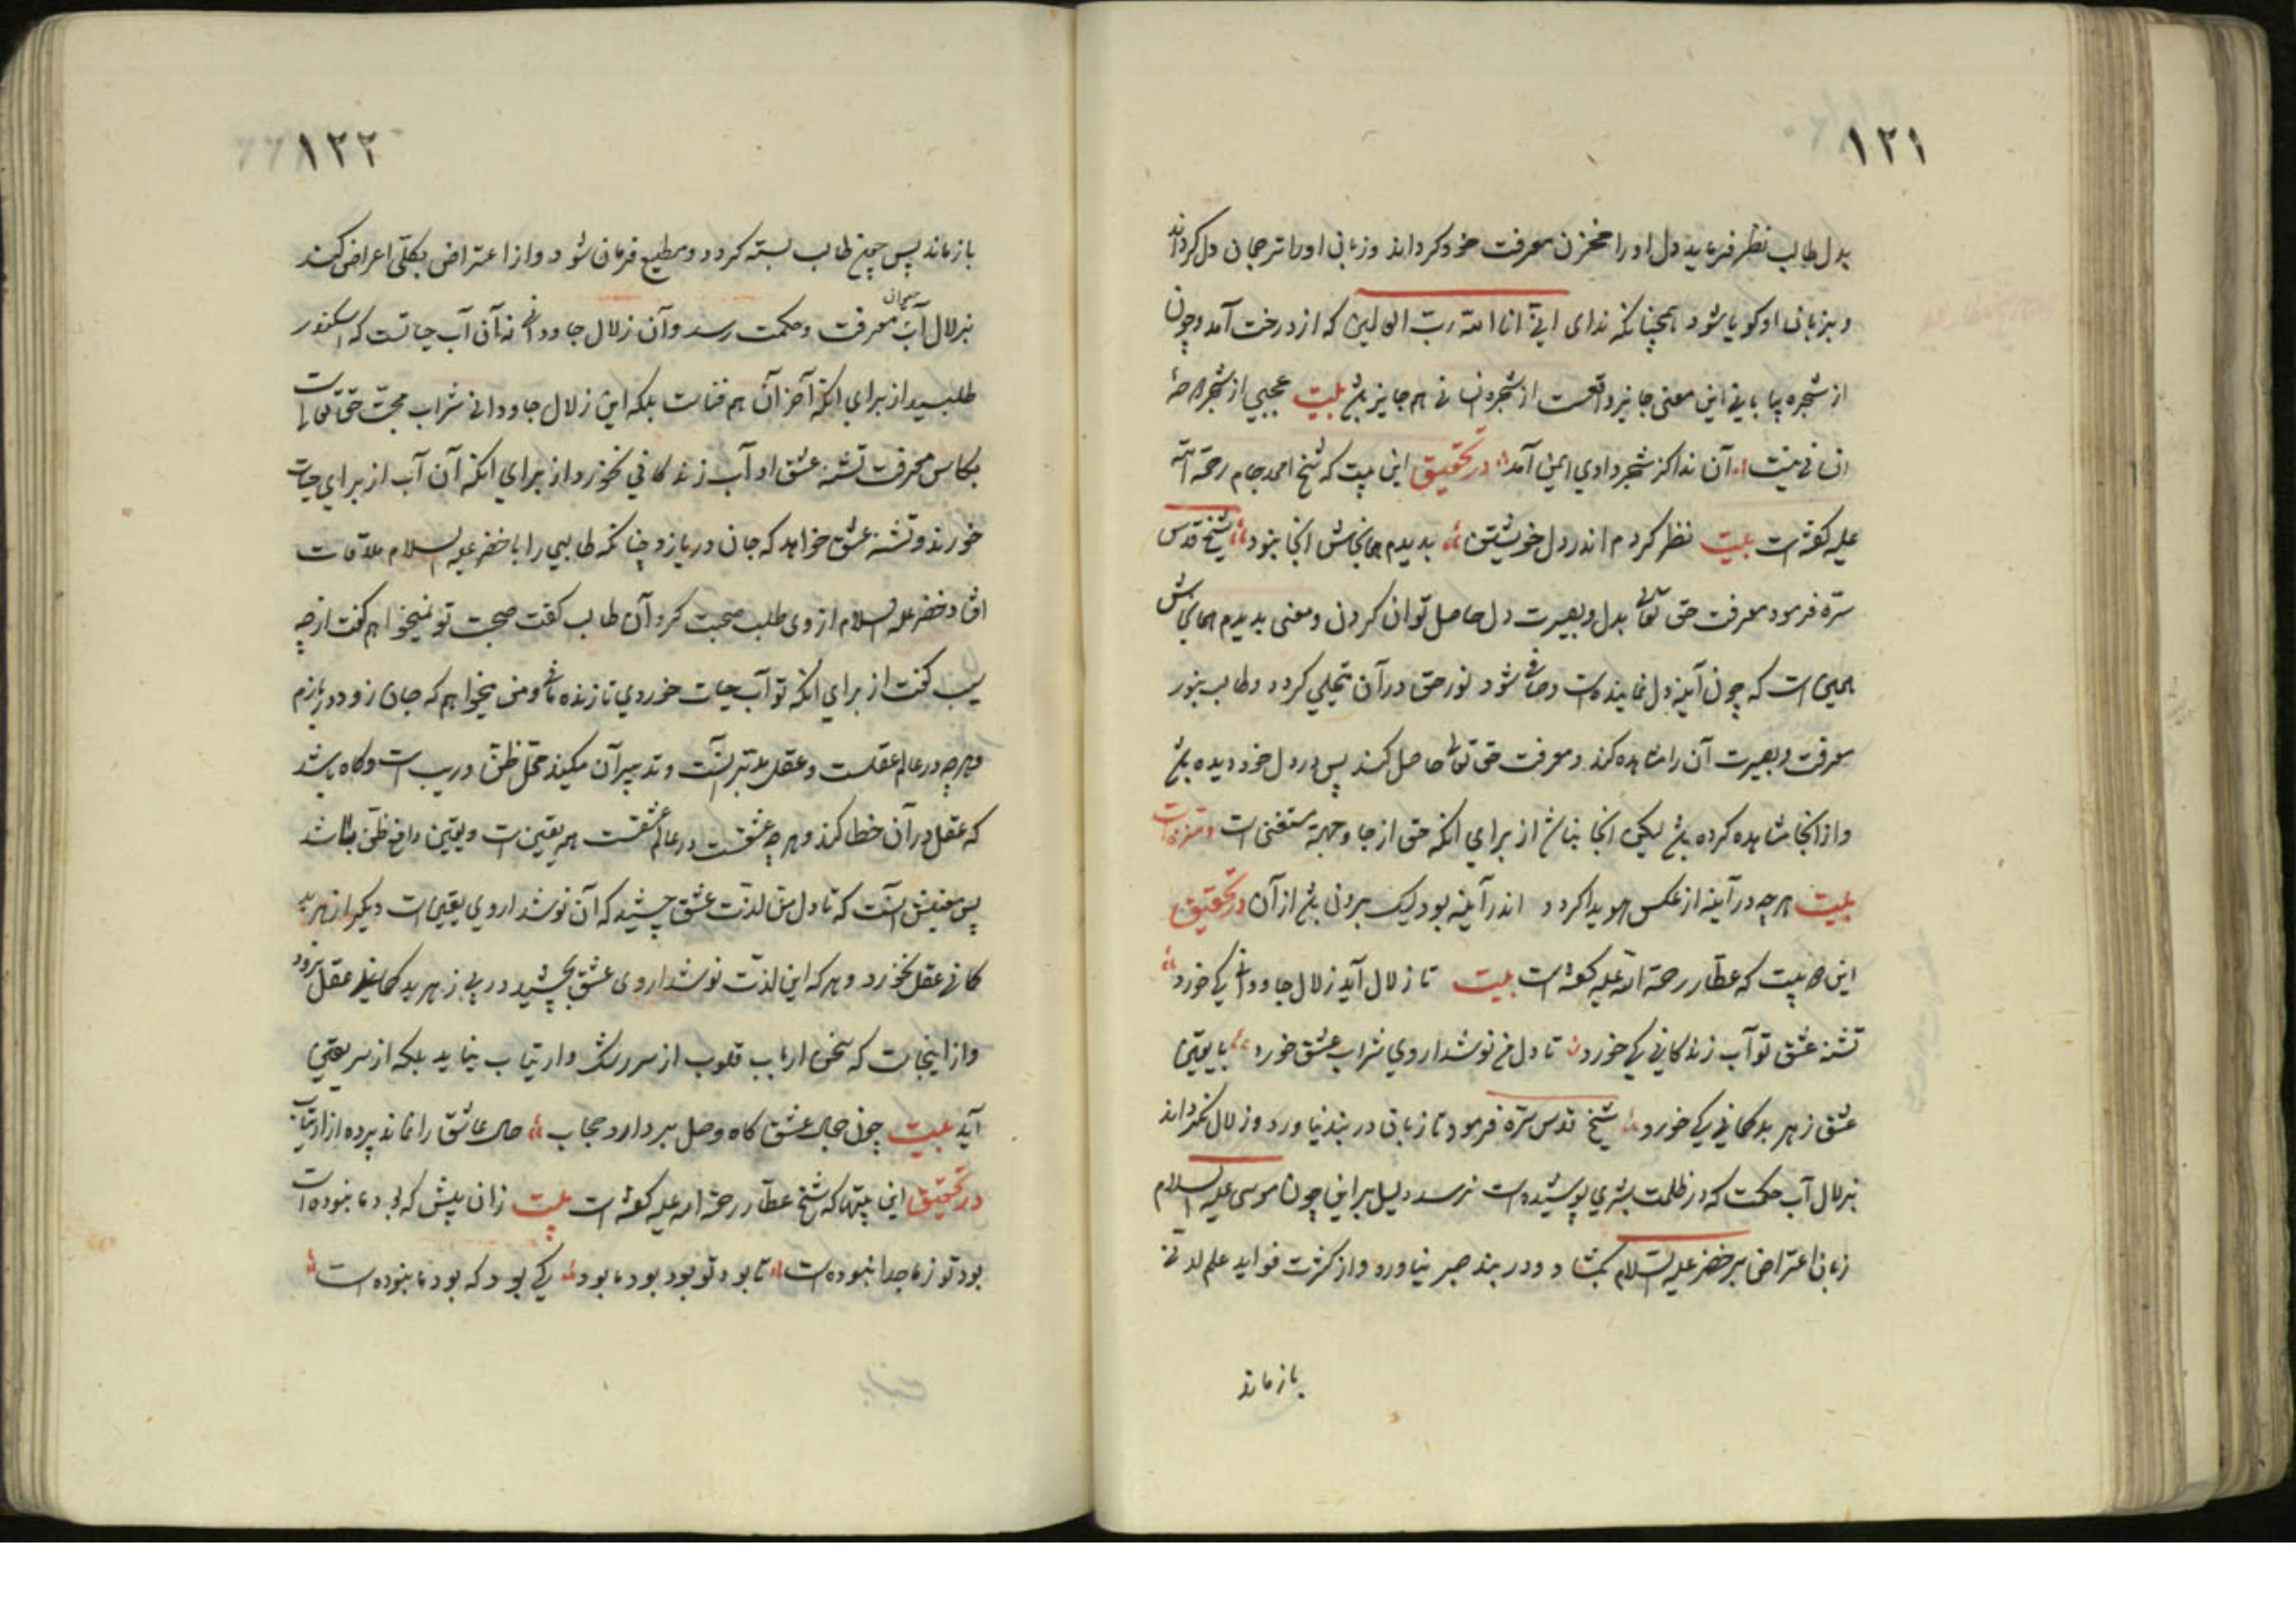 ۱۲۱
بدل طالب نظر فرماید دل او را مخزن معرفت خود کرداند وزبان اورا ترجمان دل کرداند
وبزبان او کویا شود همچنانکه ندای انی انا الله رب العالمین که از درخت آمد وچون
از شجره بیابانی این معنی جایز واقعست از شجره انسانی هم جایز باشد بیت عجبی از شجرهٔ
انسانی نیست آن ندا کز شجر وادی ایمن آمد در تحقیق این بیت که شیخ احمد جام رحمة الله
علیه کفته است بیت نظر کردم اندر دل خویشتن بدیدم همانجاش انجا نبود شیخ قدس
سره فرمود معرفت حق تعالی بدل وبصیرت دل حاصل توان کردن ومعنی بدیدم همانجاش
همین است که چون آینهٔ دل نماینده است وصافی شود نور حق درآن تجلی کردد وطالب بنور
معرفت وبصیرت آن را مشاهده کند ومعرفت حق تعالی حاصل کند پس در دل خود دیده باشد
واز انجا مشاهده کرده باشد لیکن انجا نباشد از برای انکه حق از جا وجهة مستغنی است ومنزه است
بیت هرچه در آینه از عکس هویدا کردد اندر آینه بود لیک برون باشد از آن در تحقیق
این بیت که عطار رحمة الله علیه کفته است بیت تا زلال آید زلال جاودانی کی خورد
تشنه عشق تو آب زندکانی کی خورد تا دل من نوشداروی شراب عشق خورد با یقین
عشق زهر بدکمانی کی خورد شیخ قدس سره فرمود تا زبان در بند نیاورد وزلال نکرداند
بزلال آب حکمت که در ظلمت بشری پوشیده است نرسد دلیل براین چون موسی علیه السلام
زبان اعتراض بر خضر علیه السلام بکشاد ودر بند صبر نیاورد واز کثرت فواید علم لدنی
باز ماند
۱۲۲
باز ماند پس چون طالب بسته کردد ومطیع فرمان شود واز اعتراض بکلی اعراض کند
بزلال آب حیوان معرفت وحکمت رسد وآن زلال جاودانی نه آن آب حیاتست که اسکندر
طلبید از برای انکه آخر آن هم فناست بلکه این زلال جاودانی شراب محبت حق تعالی است
بکاس معرفت تشنه عشق او آب زندکانی نخورد از برای انکه آن آب از برای حیات
خورند وتشنه عشق خواهد که جان دربازد چنانکه طالبی را با خضر علیه السلام ملاقات
افتاد خضر علیه السلام از وی طلب صحبت کرد آن طالب کفت صحبت تو نمیخواهم کفت از چه
سبب کفت از برای انکه تو آب حیات خوردی تا زنده باشی ومن میخواهم که جان زود دربازم
وهرچه در عالم عقلست وعقل مدبر آنست وتدبیر آن میکند محل ظن وریب است وکاه باشد
که عقل در آن خطا کند وهرچه عشقست در عالم عشقست همه یقین است ویقین دافع ظن باشد
پس معنیش آنست که تا دل من لذت عشق چشید که آن نوشداروی یقین است دیکر از زهر بد
کمانی عقل نخورد وهر که این لذت نوشداروی عشق بچشید در پی زهر بدکمانی عقل نرود
واز اینجاست که سخن ارباب قلوب از سر شک وارتیاب نیاید بلکه از سر یقین
آید بیت چون جمال عشق کاه وصل بردارد حجاب حال عاشق را نماند پرده از ارتیاب
در تحقیق این بیتها که شیخ عطار رحمة الله علیه کفته است بیت زان پیش که بود ما نبوده است
بود تو زما جدا نبوده است تا بود تو بود بود ما بود کی بود که بود ما نبوده است